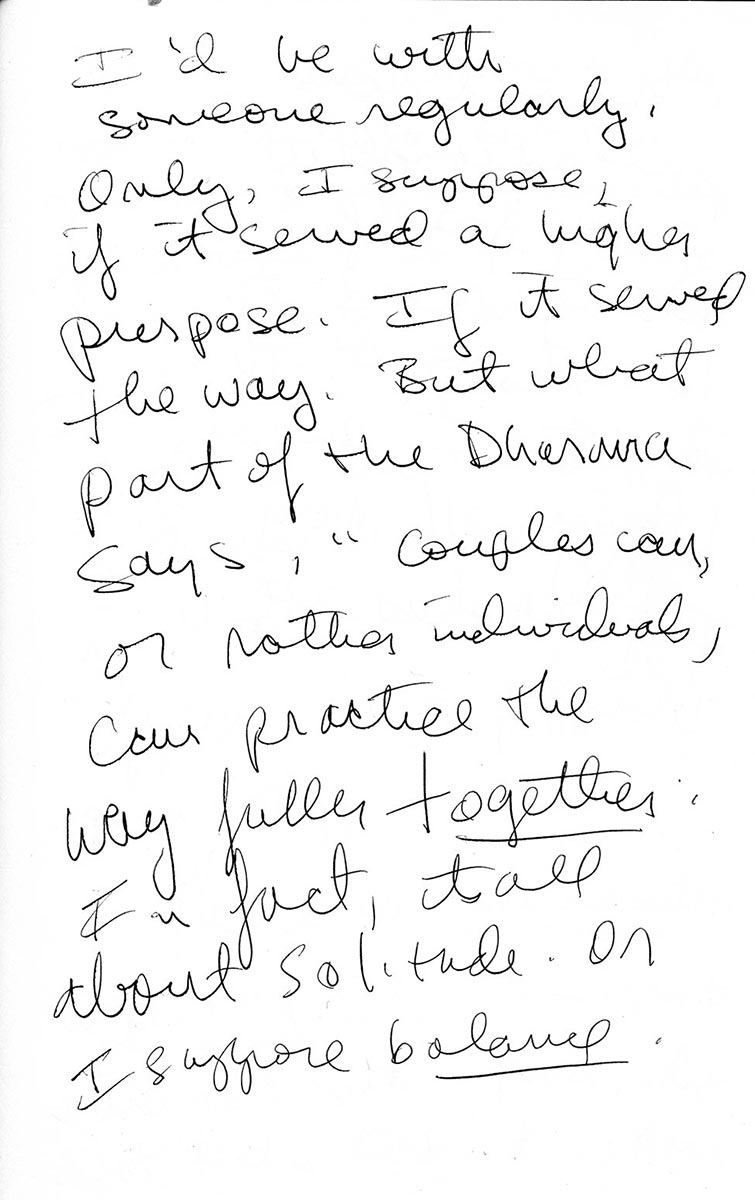 I'd be with
someone regularly.
Only, I suppose,
if it served a higher
purpose. If it served
the way. But what
part of the Dharma
says, "couples can,
or rather individuals,
can practice the
way fuller together.
In fact, its all
about solitude. Or
I suppose balance.